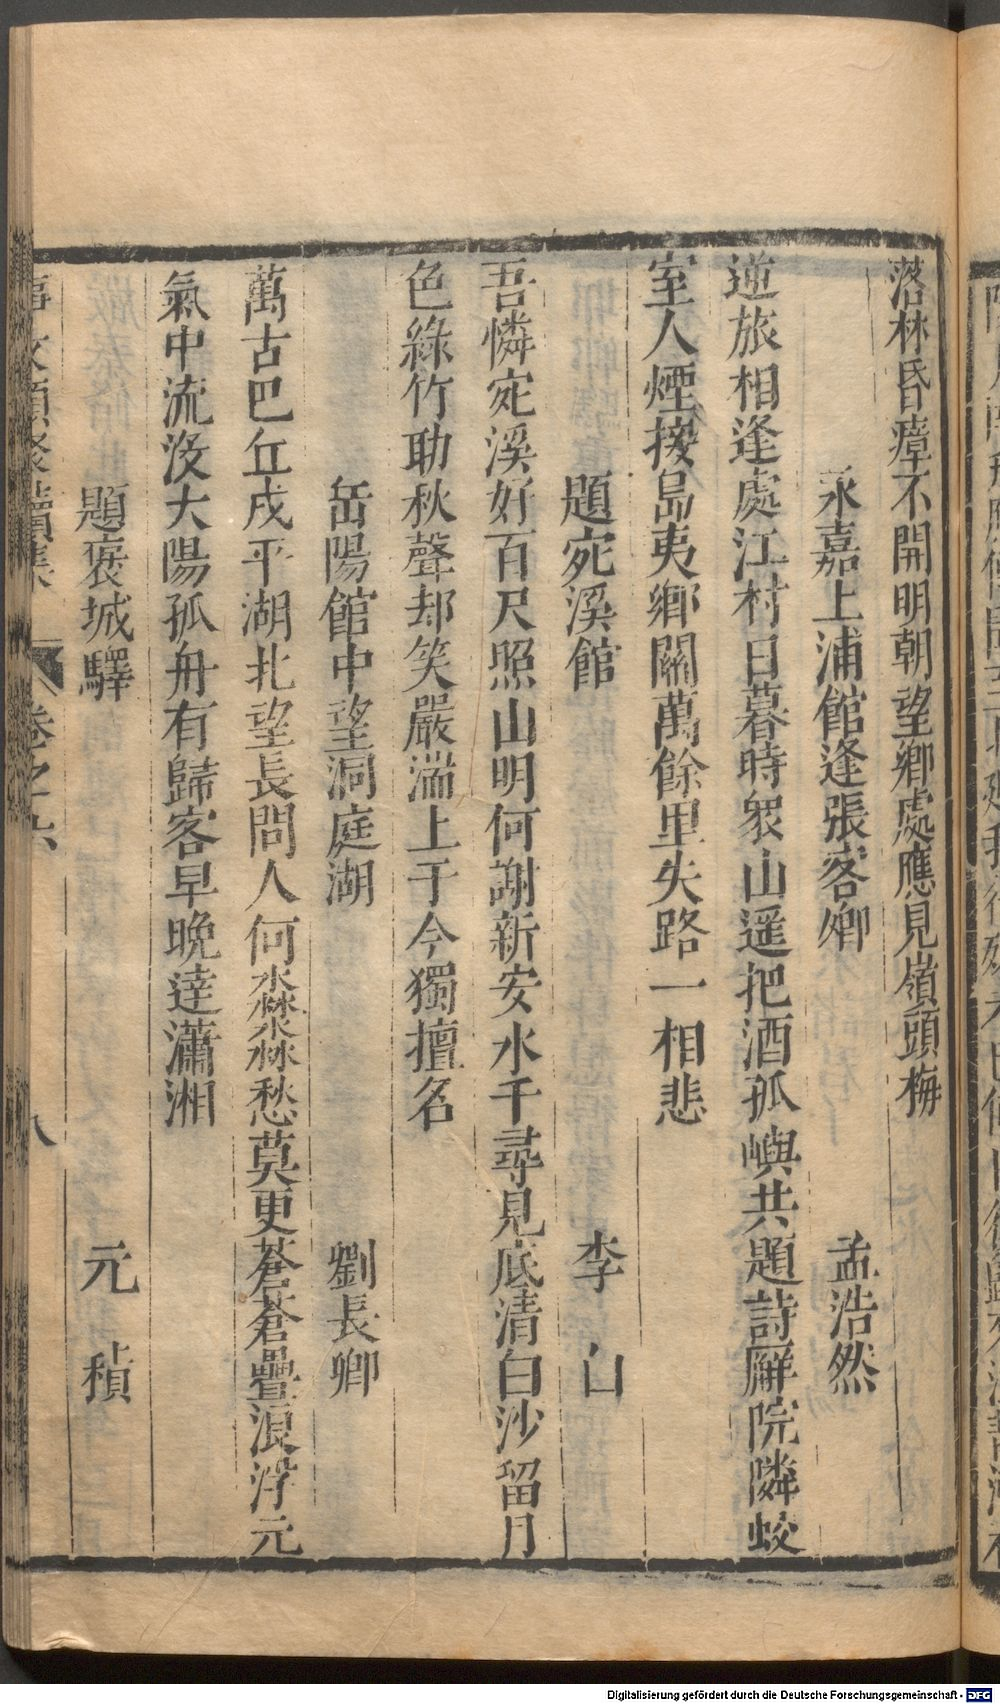 落林昏瘴不開明朝望鄉處應見嶺頭梅
永嘉上浦館逢張客卿 孟浩然
逆旅相逢處江村日暮時衆山遥把酒孤嶼共題詩廨院隣蛟
室人煙接島夷鄉關萬餘里失路一相悲
題宛溪館 李白
吾憐宛溪好百尺照山明何謝新安水千尋見底清白沙留月
色綠竹助秋聲却笑嚴湍上于今獨擅名
岳陽館中望洞庭湖 劉長卿
萬古巴丘戍平湖北望長問人何淼淼愁莫更蒼蒼疊浪浮元
氣中流沒大陽孤舟有歸客早晚達瀟湘
題褒城驛 元稹
事文類聚續集 卷之六 八
Digitalisierung gefördert durch die Deutsche Forschungsgemeinschaft - DFG